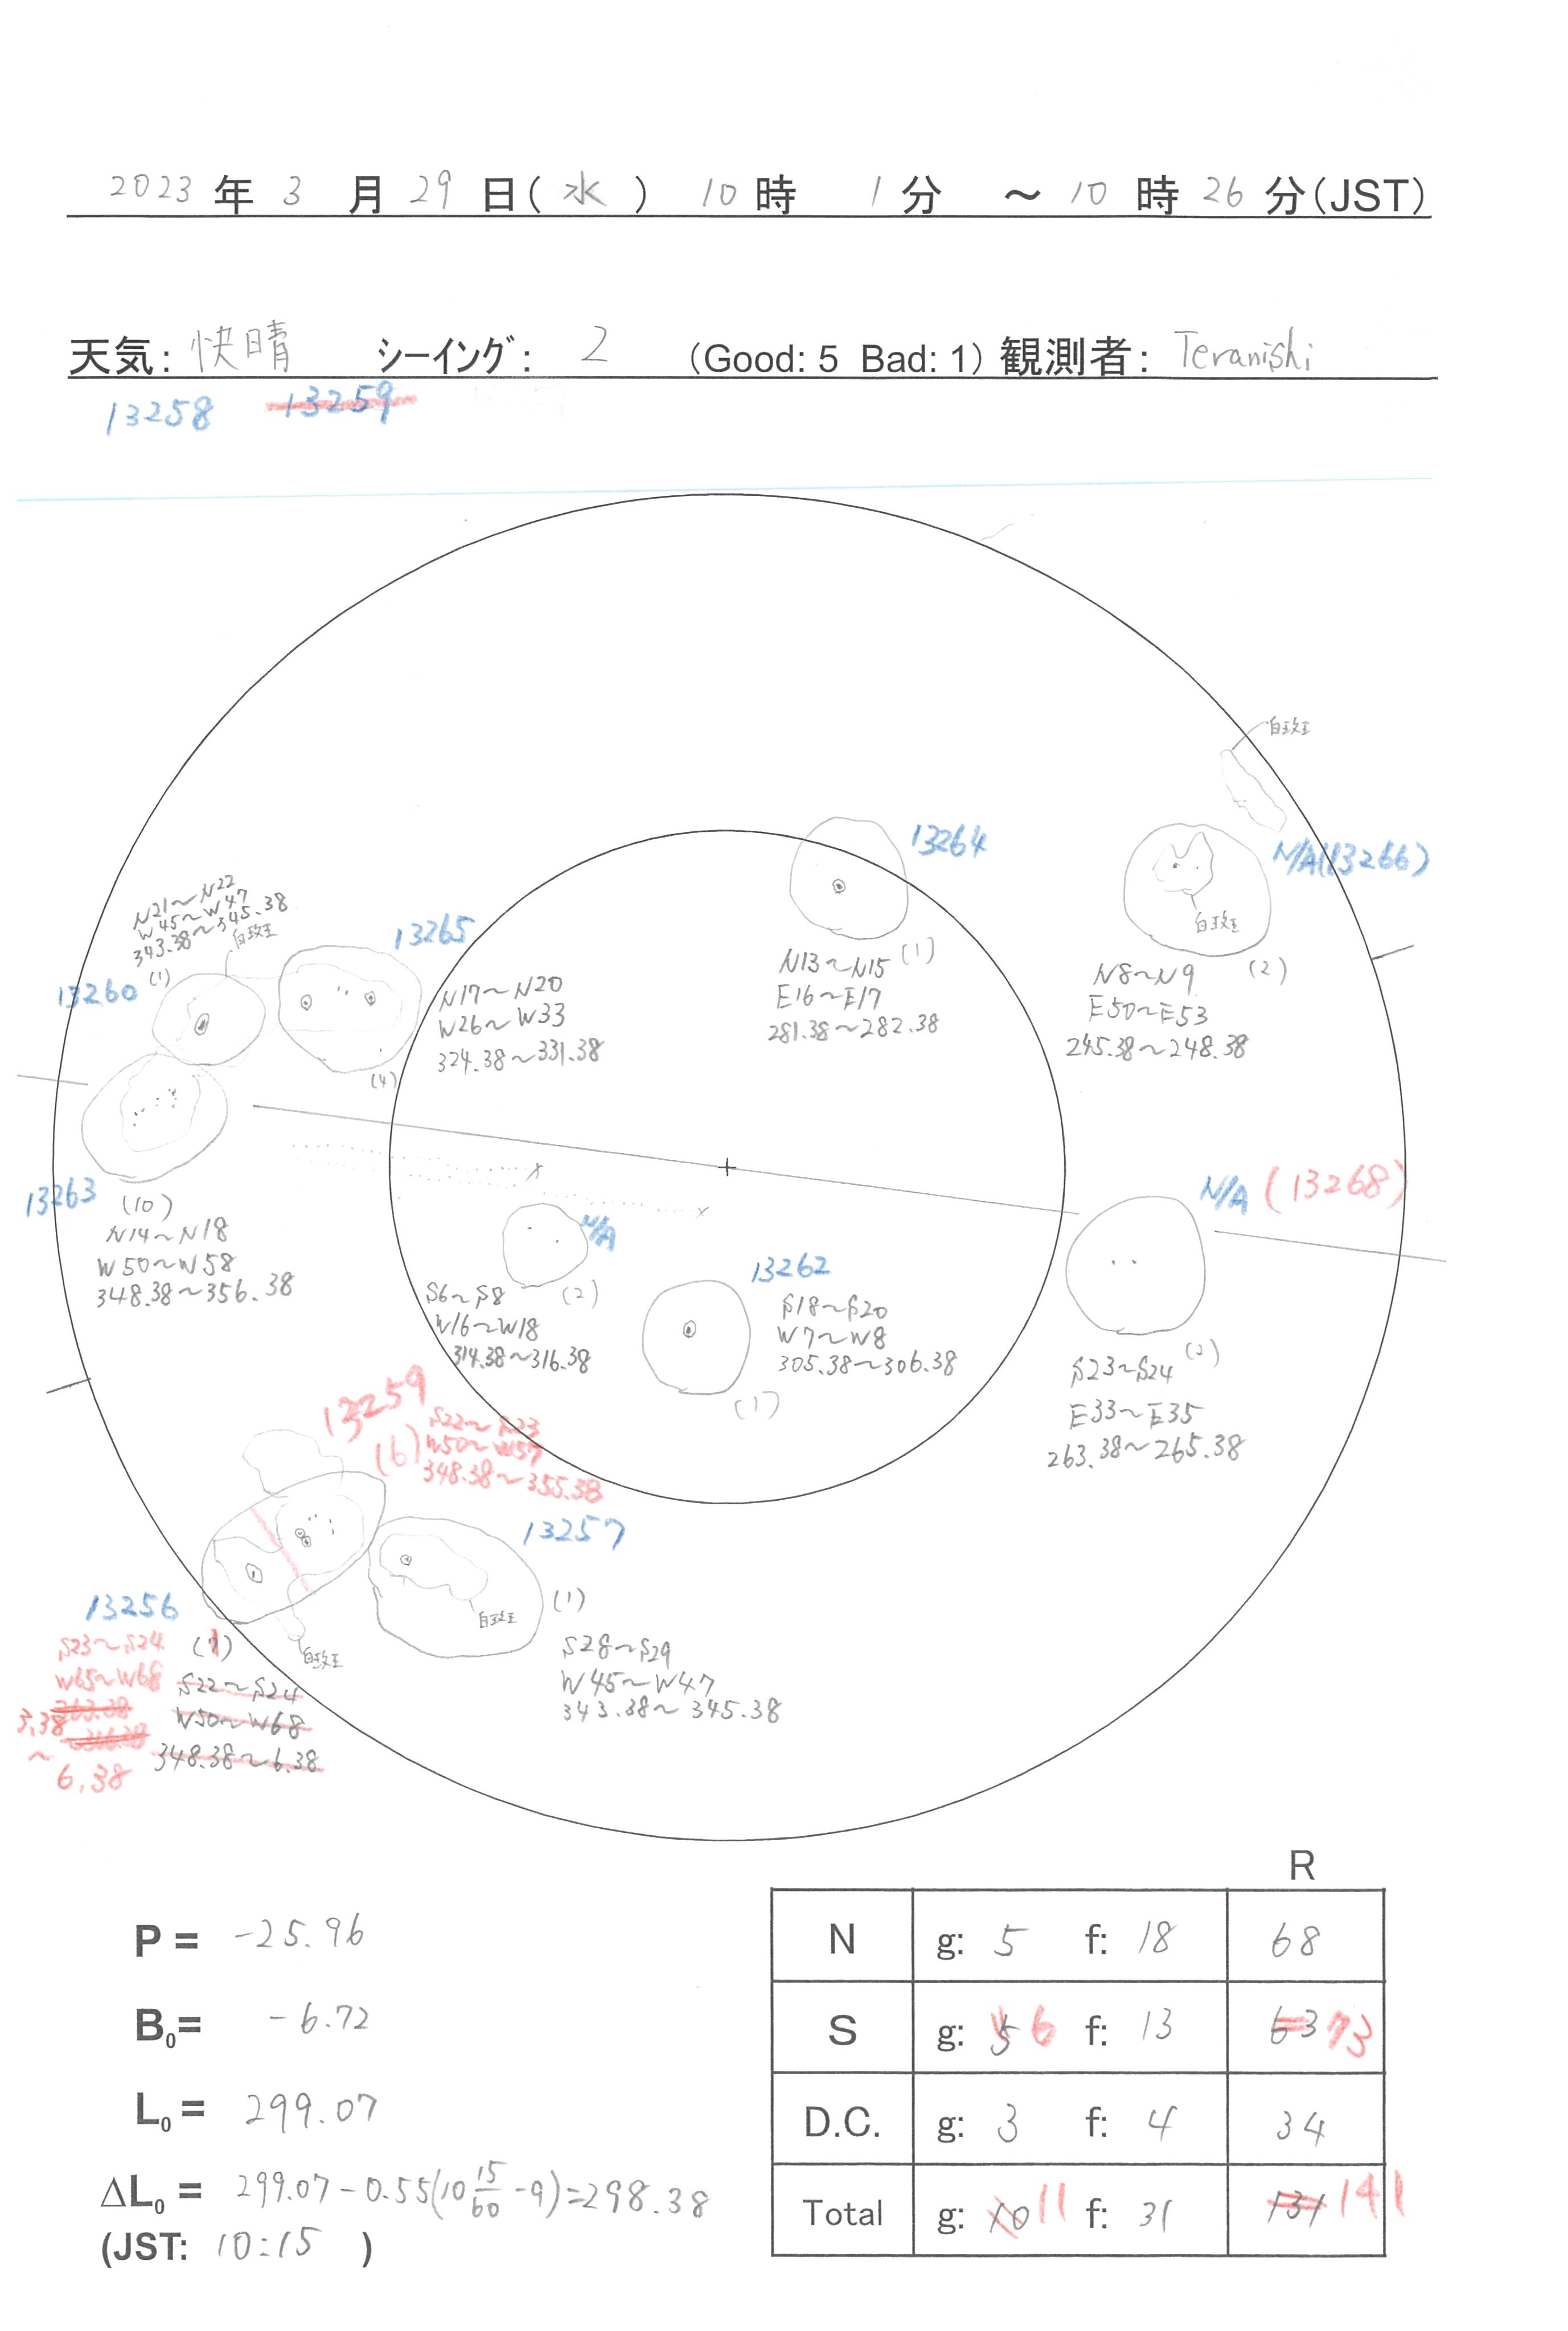 2023 年 3 月 29 日( 水 ) 10 時 1 分 ～ 10 時 26 分(JST)
天気: 快晴 シーイング: 2 (Good: 5 Bad: 1) 観測者: Teranishi
13258 13259
白斑
13264
N/A(13266)
白斑
N21～N22
W45～W47
343.38～345.38
白斑
(1)
13260
13265
N17～N20
W26～W33
324.38～331.38
(4)
(1)
N13～N15
E16～E17
281.38～282.38
(2)
N8～N9
E50～E53
245.38～248.38
13263
(10)
N14～N18
W50～W58
348.38～356.38
N/A
(2)
S6～S8
W16～W18
314.38～316.38
13262
S18～S20
W7～W8
305.38～306.38
(1)
N/A (13268)
(2)
S23～S24
E33～E35
263.38～265.38
13259
(6)
S22～S23
W50～W57
348.38～355.38
13257
(1)
白斑
S28～S29
W45～W47
343.38～345.38
13256
(1)
白斑
S23～S24
W65～W68
3.38
～
6.38
S22～S24
W50～W68
348.38～6.38
P = -25.96
B₀= -6.72
L₀ = 299.07
ΔL₀ = 299.07-0.55(10 15/60 -9)=298.38
(JST: 10:15 )
R
N g: 5 f: 18 68
S g: 5 6 f: 13 63 73
D.C. g: 3 f: 4 34
Total g: 10 11 f: 31 131 141